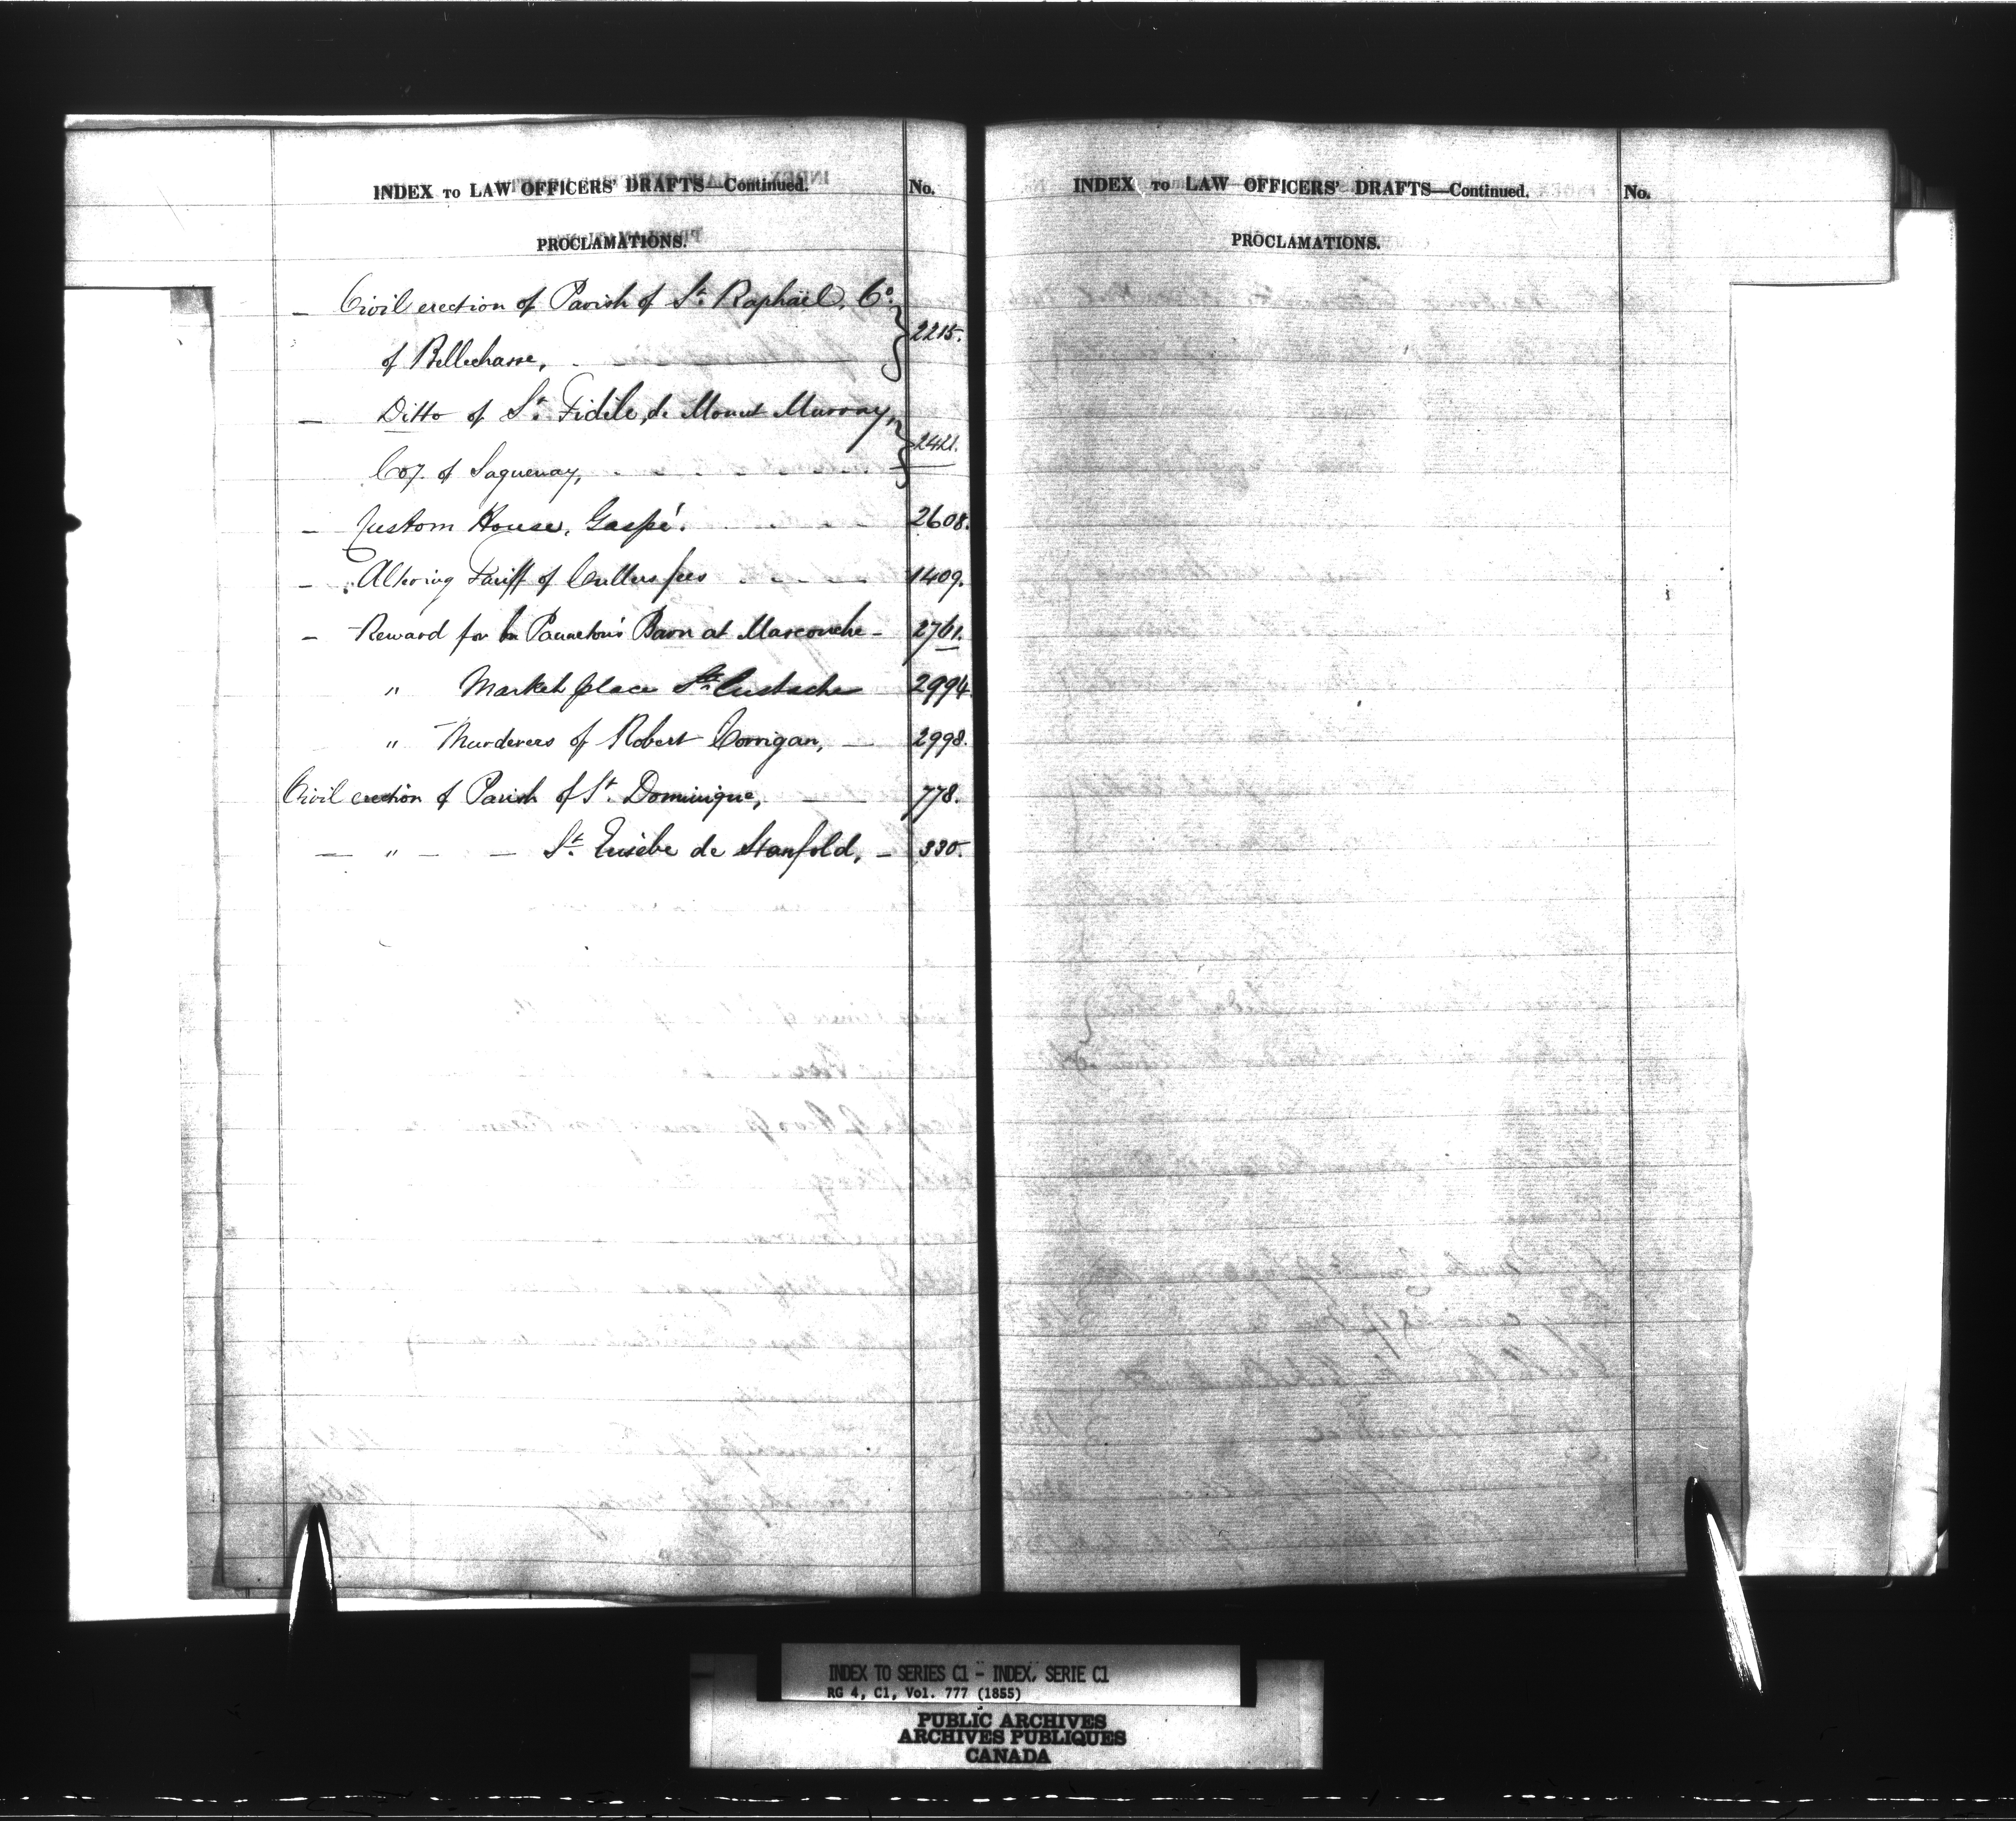 INDEX to LAW OFFICERS' DRAFTS—Continued. No.
PROCLAMATIONS.
– Civil erection of Parish of St. Raphaël, Co.
of Bellechasse, 2215.
– Ditto of St. Fidile, de Mount Murray,
Coy. of Saguenay, 2421.
– Custom House, Gaspé. 2608.
– Altering Tariff of Cullers fees 1409.
– Reward for Panneton's Barn at Mascouche – 2761.
" Market place St. Eustache 2994.
" Murderers of Robert Corrigan, — 2998.
Civil erection of Parish of St. Dominique, — 778.
— " — — St. Eusèbe de Stanfold, – 330.
INDEX to LAW OFFICERS' DRAFTS—Continued. No.
PROCLAMATIONS.
INDEX TO SERIES C1 - INDEX, SERIE C1
RG 4, C1, Vol. 777 (1855)
PUBLIC ARCHIVES
ARCHIVES PUBLIQUES
CANADA